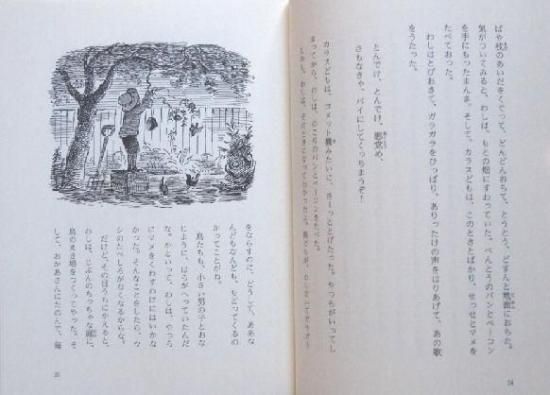 ばや枝のあいだをくぐって、どんどんおちて、とうとう、どすんと地面におちた。
気がついてみると、わしは、もとの畑にすわっていた。べんとうのパンとベーコン
を手にもったまんま。そして、カラスどもは、このときとばかり、せっせとマメを
たべておった。
わしはとびおきて、ガラガラをひっぱり、ありったけの声をはりあげて、あの歌
をうたった。
とんでけ、とんでけ、悪党め、
さもなきゃ、パイにしてくっちまうぞ！
カラスどもは、コメット機みたいに、さーっととびたった。やつらがいってし
まってから、わしは、のこりのパンとベーコンをたべた。
しかし、わしは、
24
をならすのに、どうして、ああな
んどもなんども、もどってくるの
かってことがね。
鳥たちも、小さい男の子とおな
じように、はらがへっていたんだ
な。かといって、わしは、やつら
にマメをくわすわけにはいかな
かった。そんなことをしたら、ウ
シのたべしろがなくなるからな。
だけど、そのほうちにかえると、
わしは、じぶんのちっちゃな庭に、
鳥のえさ場をつくってやった。そ
して、おかあさんにたのんで、毎
25